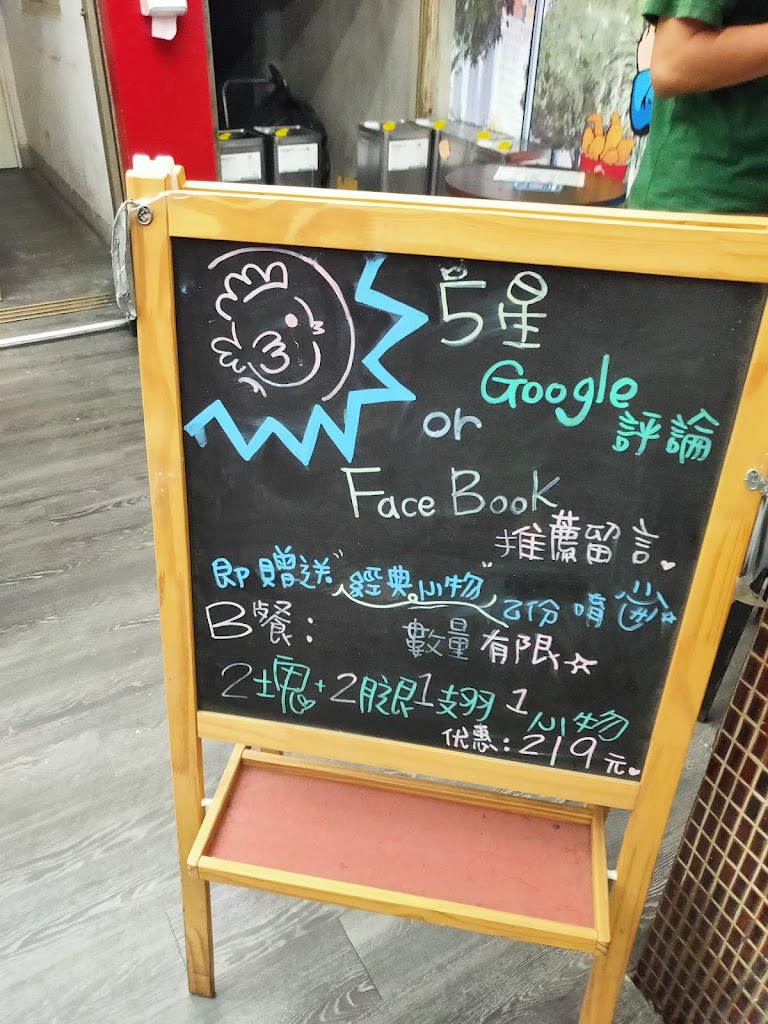 5星
Google
評論
or
Face Book
推薦留言
即贈送"經典小物"乙份唷
B餐: 數量有限
2塊+2腿1翅1小物
优惠:219元